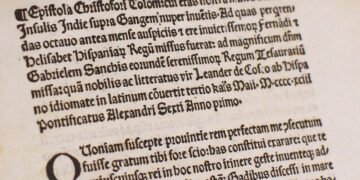 ¶ Epistola Christofori Colom: cui etas nostra multũ debet: de
Insulis Indie supra Gangem nuper inuẽtis. Ad quas perqren
das octauo antea mense auspicijs z ere inuictissemor̃ Fernãdi z
Helisabet Hispaniar̃ Regũ missus fuerat: ad magnificum dñm
Gabrielem Sanchis eorunde serenissimor̃ Regum Tesaurariũ
missa: quã nobilis ac litteratus vir Leander de Cosco ab Hispa
no idiomate in latinum cõuertit tertio kal's Maij. M.cccc.xciij
Pontificatus Alexandri Sexti Anno primo.
Quoniam suscepte prouintie rem perfectam me ꝯsecutum
fuisse gratum tibi fore scio: has constitui exarare: que te
vniuscuiusqꝫ rei in hoc nostro itinere geste inuenteqꝫ ad-
discessi in mare